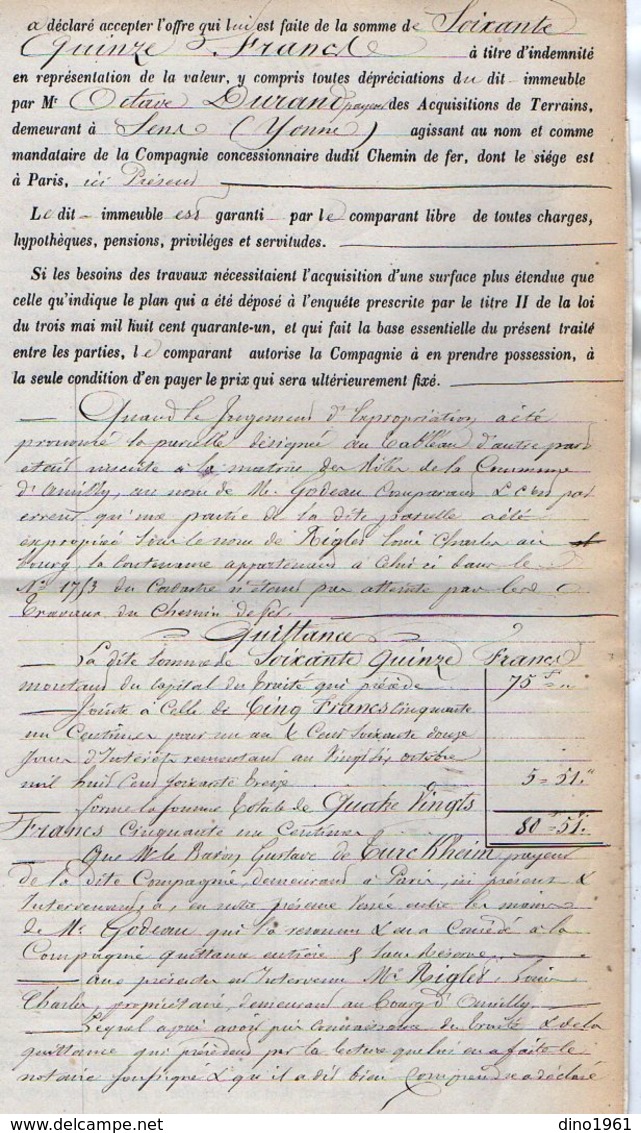 a déclaré accepter l'offre qui lui est faite de la somme de Soixante
Quinze Francs à titre d'indemnité
en représentation de la valeur, y compris toutes dépréciations du dit immeuble
par Mr Octave Durand payeur des Acquisitions de Terrains,
demeurant à Sens (Yonne) agissant au nom et comme
mandataire de la Compagnie concessionnaire dudit Chemin de fer, dont le siége est
à Paris, ici Présent
Le dit immeuble est garanti par le comparant libre de toutes charges,
hypothèques, pensions, priviléges et servitudes.
Si les besoins des travaux nécessitaient l'acquisition d'une surface plus étendue que
celle qu'indique le plan qui a été déposé à l'enquéte prescrite par le titre II de la loi
du trois mai mil huit cent quarante-un, et qui fait la base essentielle du présent traité
entre les parties, le comparant autorise la Compagnie à en prendre possession, à
la seule condition d'en payer le prix qui sera ultérieurement fixé.
Quand le Jugement d'Expropriation a été
prononcé la parcelle désignée au tableau d'autre part
était inscrite à la matrice des Rôles de la Commune
d'Amilly, au nom de M. Godeau Comparant & c'est par
erreur qu'une partie de la dite parcelle a été
expropriée sous le nom de Rigles Louis Charles au
bourg, la contenance appartenant à Celui ci sous le
No 1753 du Cadastre n'étant pas atteinte par les
travaux du Chemin de fer.
Quittance
La dite Somme de Soixante Quinze Francs
montant du Capital du traité qui précède 75 f "
Jointe à Celle de Cinq Francs Cinquante
un Centimes pour un an & Cent Soixante douze
Jours d'Intérêts remontant au Vingt six octobre
mil huit Cent Soixante treize 5 = 51 "
forme la somme totale de Quatre Vingts
Francs Cinquante un Centimes 80 f = 51 c
Que Mr le Baron Gustave de Turckheim, payeur
de la dite Compagnie, demeurant à Paris, ici présent &
Intervenant, a, en notre présence versée entre les mains
de Mr Godeau qui l'a reconnu & en a Concédé à la
Compagnie quittance entière & Sans Réserve.
Aux présentes est Intervenu Mr Rigles, Louis
Charles, propriétaire, demeurant au Bourg d'Amilly,
Lequel après avoir pris connaissance du traité & de la
quittance qui précèdent par la lecture que lui en a faite le
notaire soussigné & qu'il a dit bien Comprendre a déclaré
dino1961